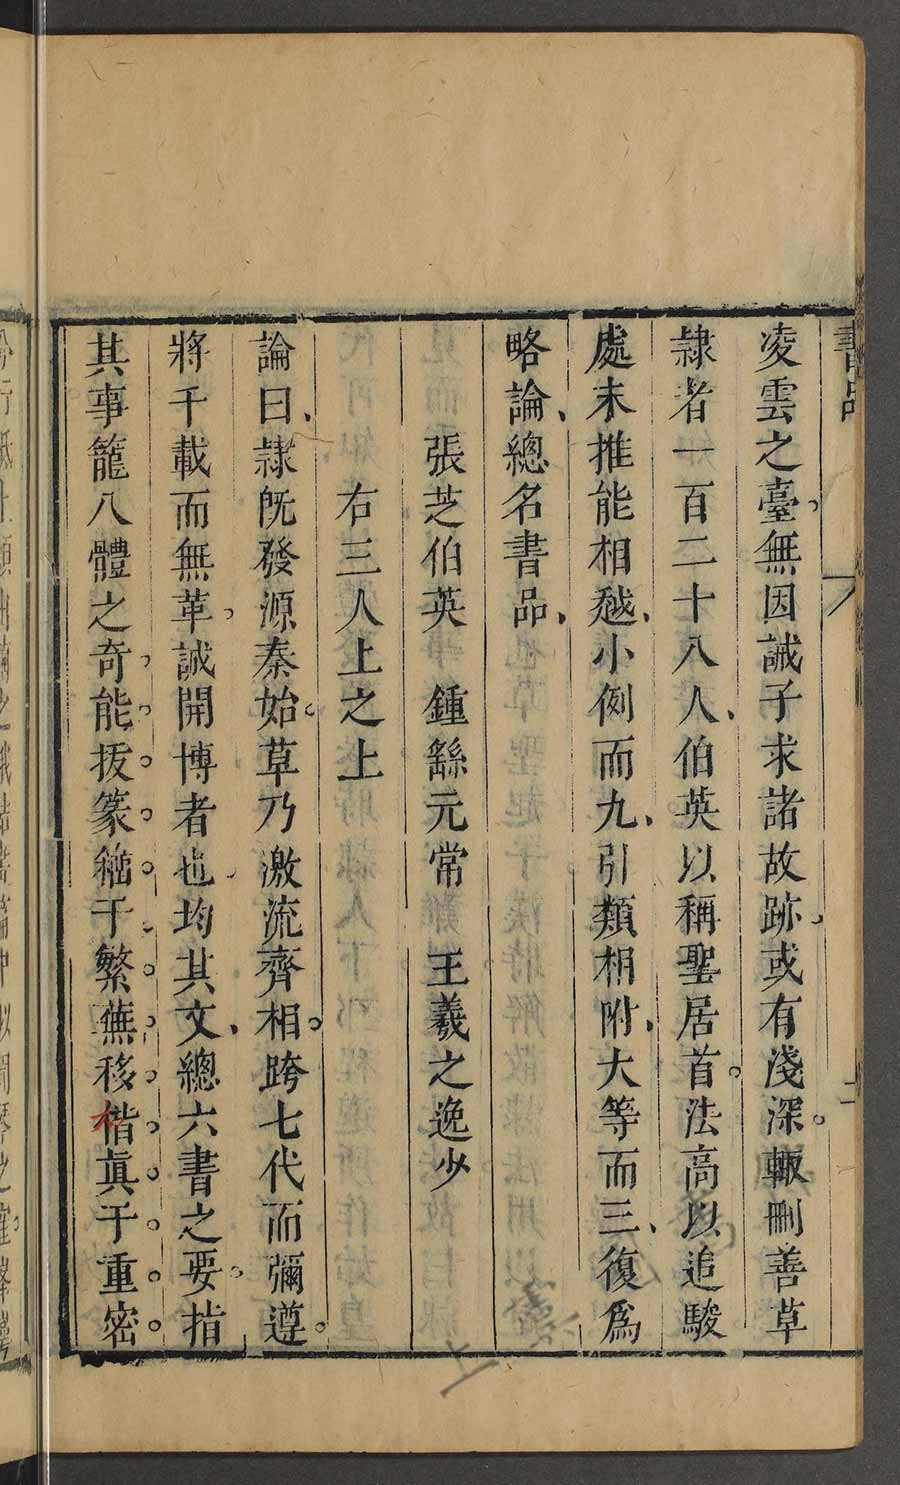 書品
凌雲之臺無因誡子求諸故跡或有淺深輙刪善草
隸者一百二十八人伯英以稱聖居首法高以追駿
處末推能相越小例而九引類相附大等而三復爲
略論總名書品
張芝伯英 鍾繇元常 王羲之逸少
右三人上之上
論曰隸旣發源秦始草乃激流齊相跨七代而彌遵
將千載而無革誠開博者也均其文總六書之要指
其事籠八體之奇能拔篆籀于繁蕪移楷眞于重密